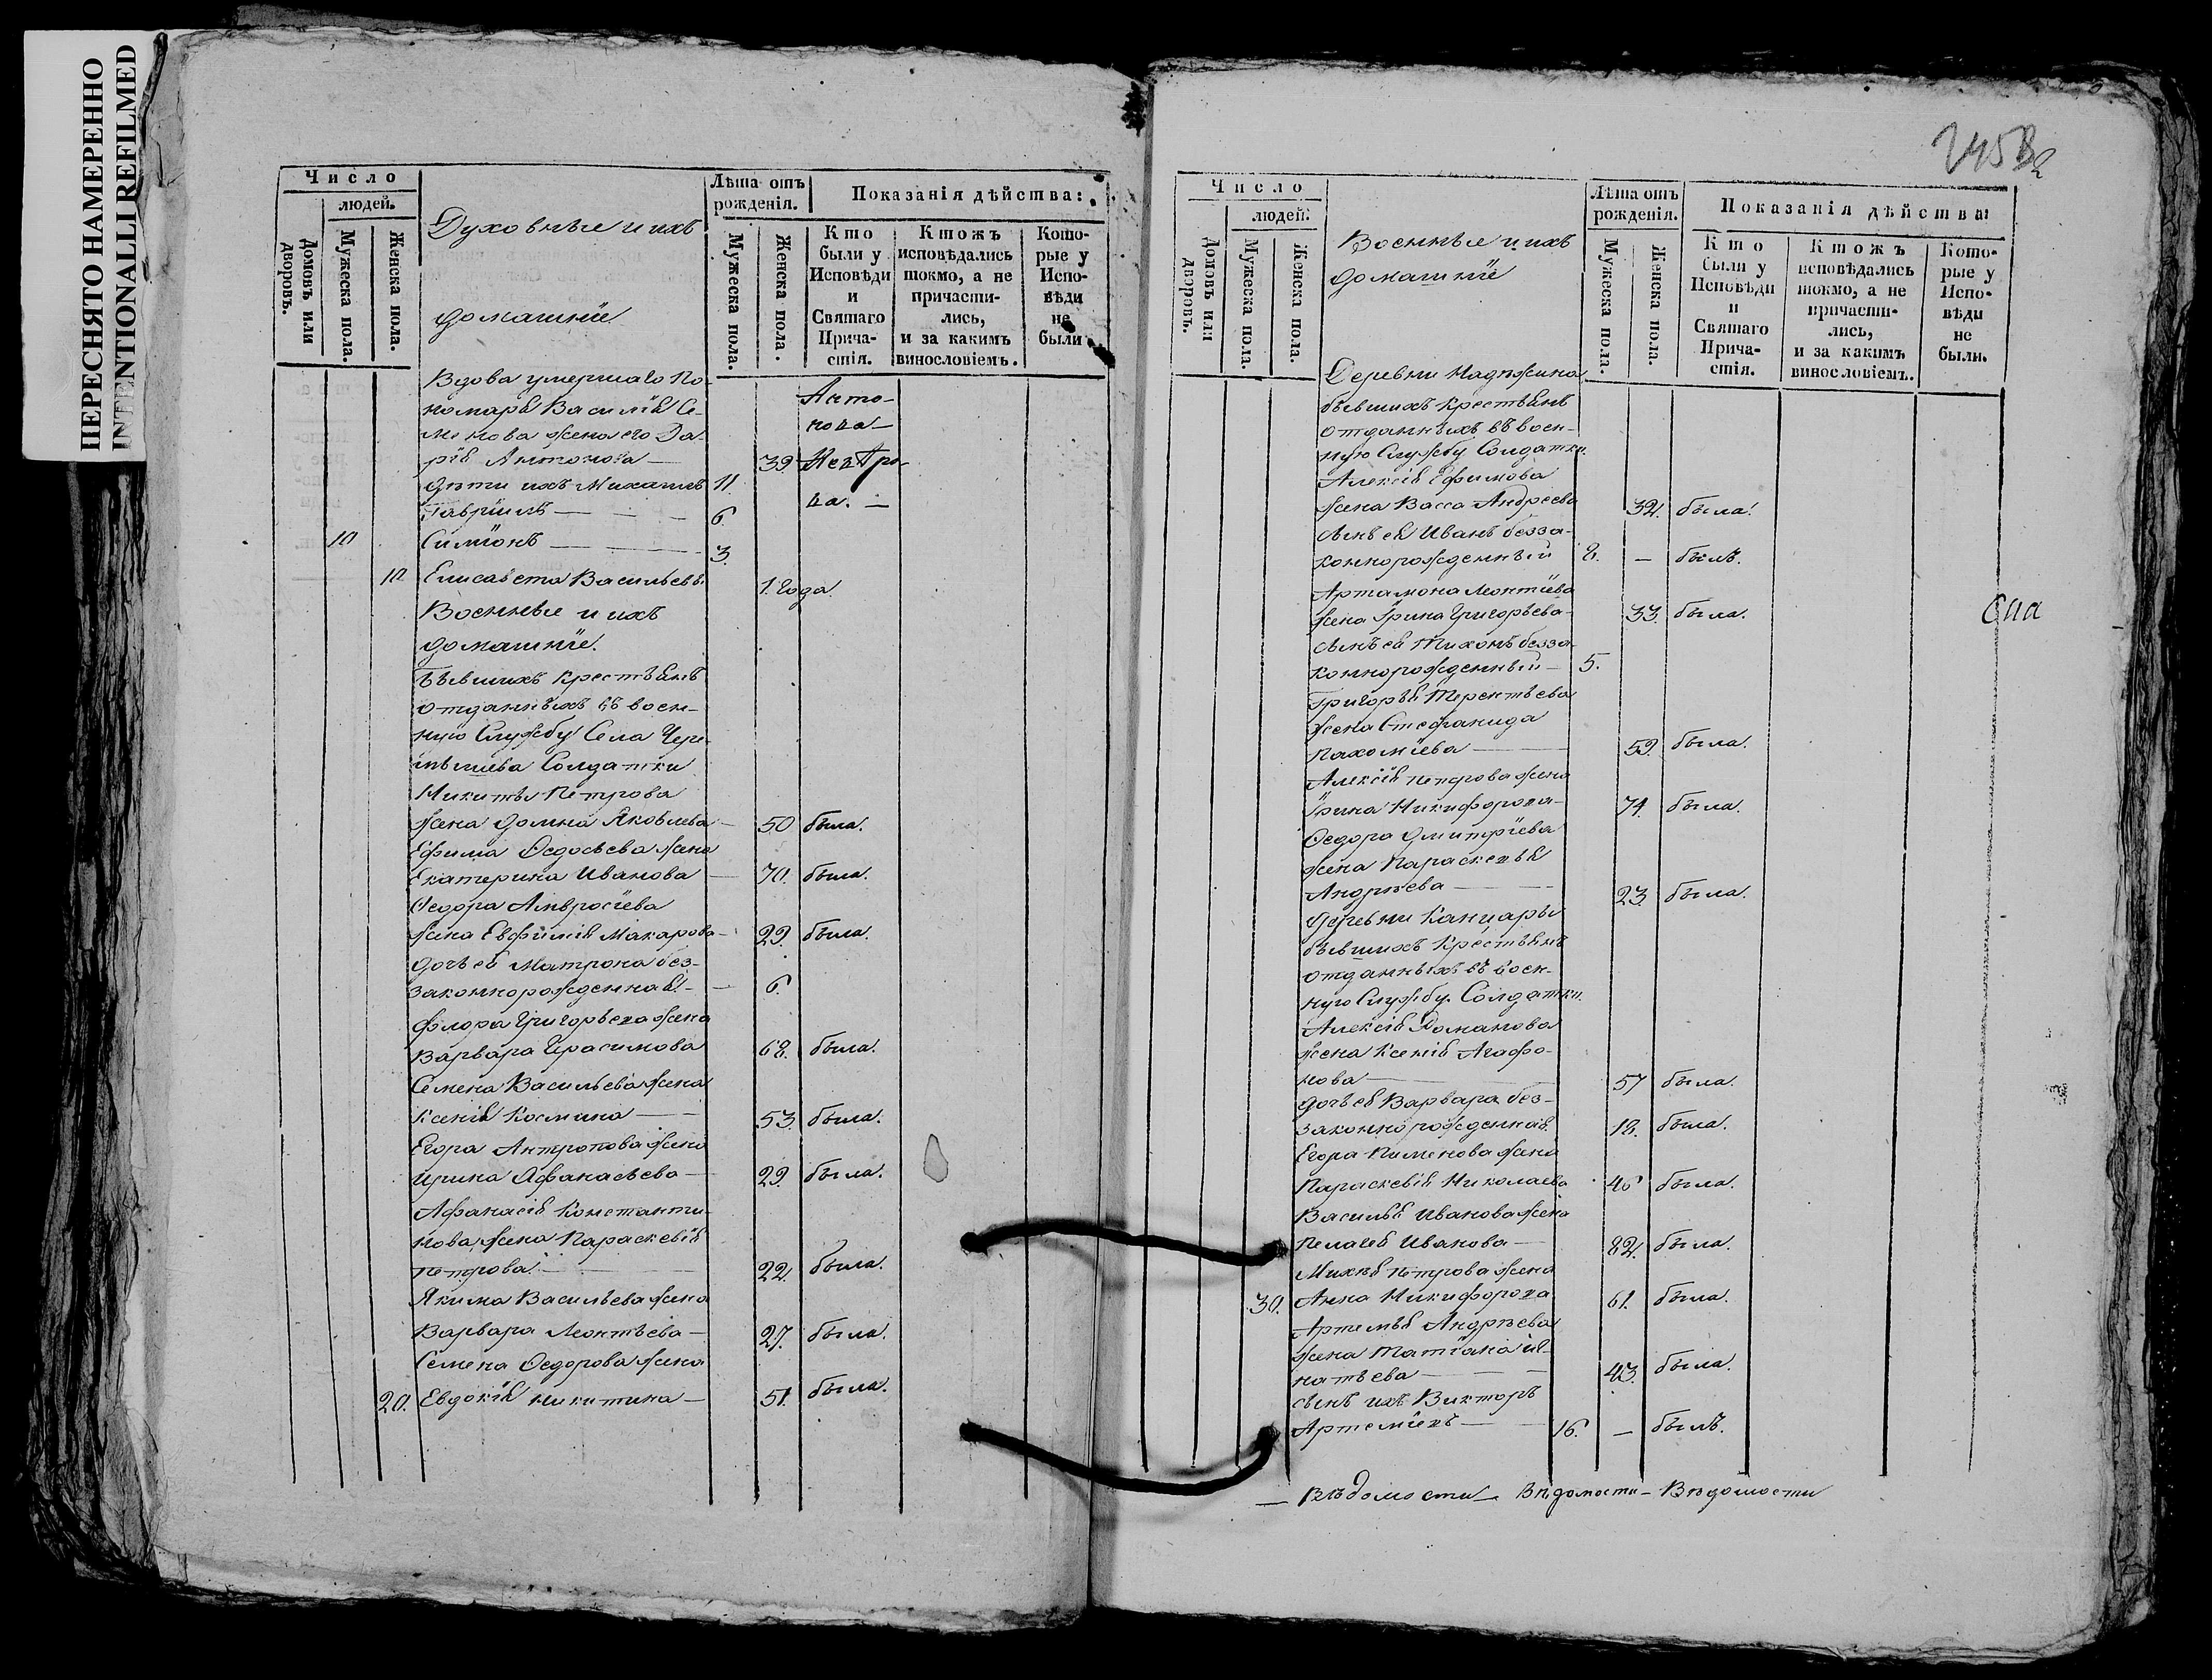 ПЕРЕСНЯТО НАМЕРЕННО
INTENTIONALLI REFILMED
Число
людей.
Домовъ или дворовъ.
Мужеска пола.
Женска пола.
Духовные и ихъ
домашніе
Лѣта отъ рожденія.
Мужеска пола.
Женска пола.
Показанія дѣйства:
Кто были у Исповѣди и Святаго Причастія.
Ктожъ исповѣдались токмо, а не причастились, и за какимъ винословіемъ.
Которые у Исповѣди не были
Вдова умершаго По-
номаря Василія Се-
менова жена его Да-
рія Антонова — 39
дѣти ихъ Михаилъ 11.
Гавріилъ — 6
10 Симіонъ — 3.
10. Елисавета Васильева 1. года
Военные и ихъ
домашніе.
Бывшихъ крестьянъ
отданныхъ въ воен-
ную Службу Села
Солдатки
Никиты Петрова
жена Домна Яковлева — 50 была.
Ефима Ѳедосѣева жена
Екатерина Иванова — 70. была.
Ѳедора Амвросіева
жена Евфимія Макарова — 29. была.
дочь ея Матрона без-
законнорожденная — 6.
Флора Григорьева жена
Варвара Герасимова 68. была.
Семена Васильева жена
Ксенія Космина — 53. была.
Егора Антропова жена
Ирина Афанасьева — 29. была.
Афанасія Константи-
нова жена Параскевія
Петрова — 22. была.
Якима Васильева жена
Варвара Леонтьева — 27. была.
Семена Ѳедорова жена
20. Евдокія Никитина — 51. была.
Число
людей.
Домовъ или дворовъ.
Мужеска пола.
Женска пола.
Военные и ихъ
домашніе
Лѣта отъ рожденія.
Мужеска пола.
Женска пола.
Показанія дѣйства:
Кто были у Исповѣди и Святаго Причастія.
Ктожъ исповѣдались токмо, а не причастились, и за какимъ винословіемъ.
Которые у Исповѣди не были.
Деревни Надѣжина
бывшихъ крестьянъ
отданныхъ въ воен-
ную Службу Солдатки.
Алексія Ефимова
жена Васса Андреева 32. была.
сынъ ея Иванъ безза-
коннорожденный 8. — былъ.
Артамона Леонтіева
жена Ірина Григорьева — 33. была.
сынъ ея Тихонъ безза-
коннорожденный — 5.
Григорья Терентьева
жена Стефанида
Пахоміева — 59. была.
Алексія Петрова жена
Ірина Никифорова — 74. была.
Ѳедора Дмитріева
жена Параскевья
Андрѣева — 23. была.
Деревни Канцары
бывшихъ крестьянъ
отданныхъ въ воен-
ную Службу Солдатки.
Алексія Романова
жена Ксенія Агафо-
нова — 57 была.
дочь ея Варвара без-
законнорожденная 18. была.
Егора Пименова жена
Параскевія Николаева 46 была.
Василья Иванова жена
Пелагея Иванова — 82. была.
Михея Петрова жена
30. Анна Никифорова 61. была.
Артемья Андрѣева
жена Татіана Иг-
натьева — 43. была.
сынъ ихъ Викторъ
Артеміевъ — 16. — былъ.
— Вѣдомости — Вѣдомости — Вѣдомости